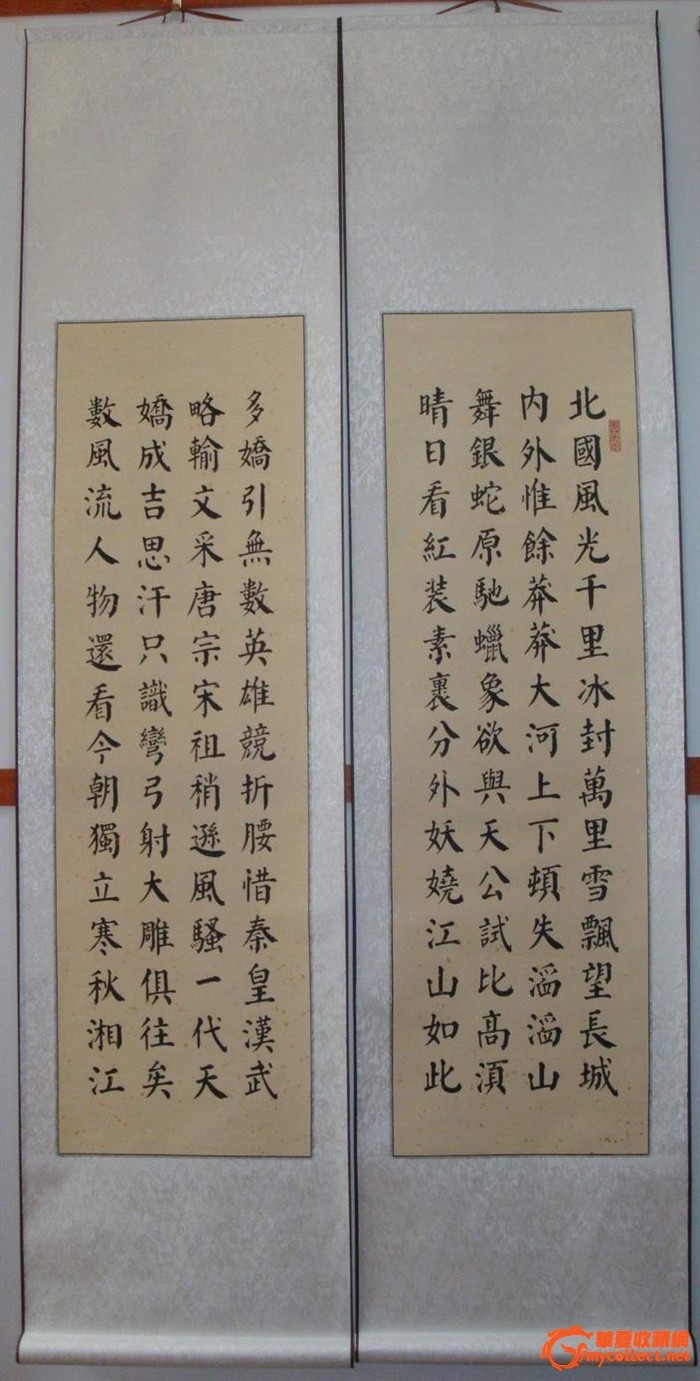 北國風光千里冰封萬里雪飄望長城
内外惟餘莽莽大河上下頓失滔滔山
舞銀蛇原馳蠟象欲與天公試比高湏
晴日看紅装素裹分外妖嬈江山如此
多嬌引無數英雄競折腰惜秦皇漢武
略輸文采唐宗宋祖稍遜風騷一代天
嬌成吉思汗只識彎弓射大雕俱往矣
數風流人物還看今朝獨立寒秋湘江
華夏收藏網
mycollect.net